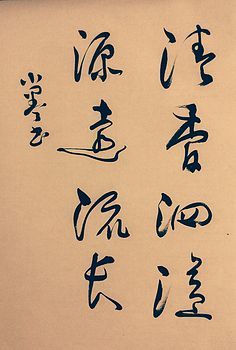 清香四溢
源遠流长